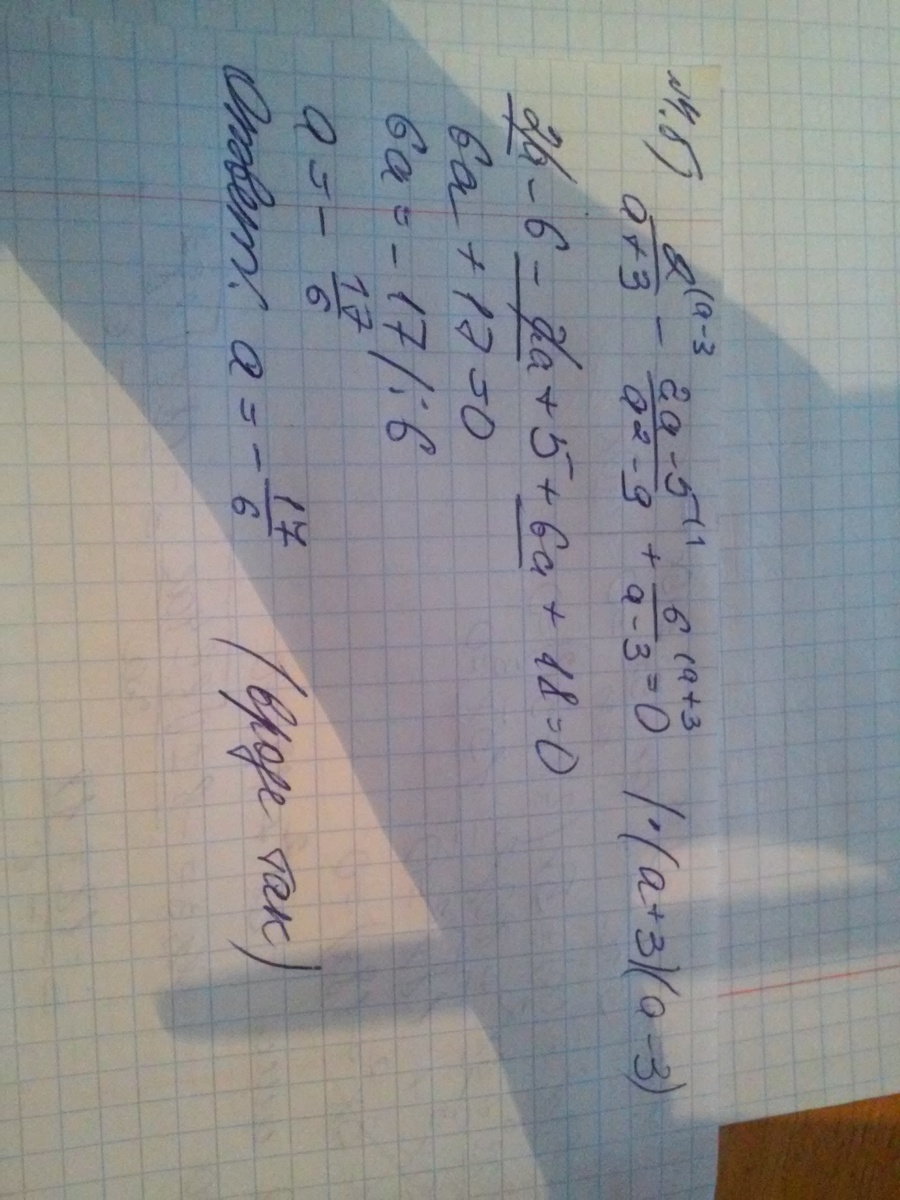 №4. б) 2(a-3 / a+3 - 2a-5(1 / a2-9 + 6(a+3 / a-3 = 0 /·(a+3)(a-3)
2a - 6 - 2a + 5 + 6a + 18 = 0
6a + 17 = 0
6a = - 17 /:6
a = - 17/6
Ответ: a = - 17/6 (вроде так)